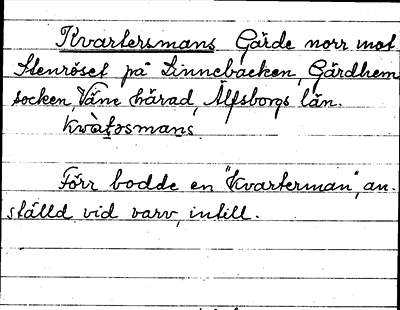 Kvartersmans Gärde norr mot
Stenröset på Linnebacken, Gärdhem
socken, Väne härad, Älfsborgs län.
Kwàtəsmans
Förr bodde en "Kvarterman", an-
ställd vid varv, intill.